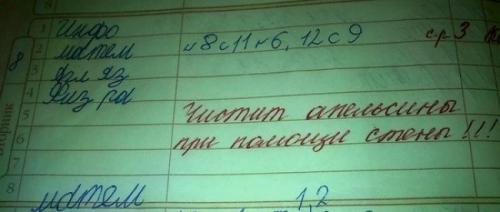 1 Инфо
2 матем №8 с11 №6, 12 с9 ср 3
3 язм яз
4 Физ ра
5 Чистит апельсины
6 при помощи стены!!!
7
8
8
вторник
матем 1,2